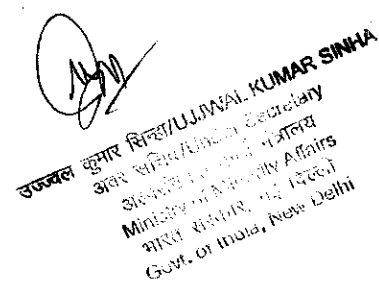 उज्ज्वल कुमार सिन्हा/UJJWAL KUMAR SINHA
अवर सचिव/Under Secretary
मंत्रालय
Ministry of Minority Affairs
भारत सरकार, नई दिल्ली
Govt. of India, New Delhi